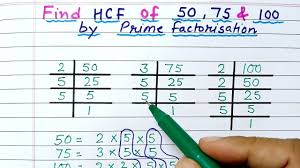 Find HCF of 50, 75 & 100
by Prime Factorisation
2 50 3 75 2 100
5 25 5 25 2 50
5 5 5 5 5 25
1 1 5 5
1
50 = 2 × 5 × 5
75 = 3 × 5 × 5
100 = 2 ×